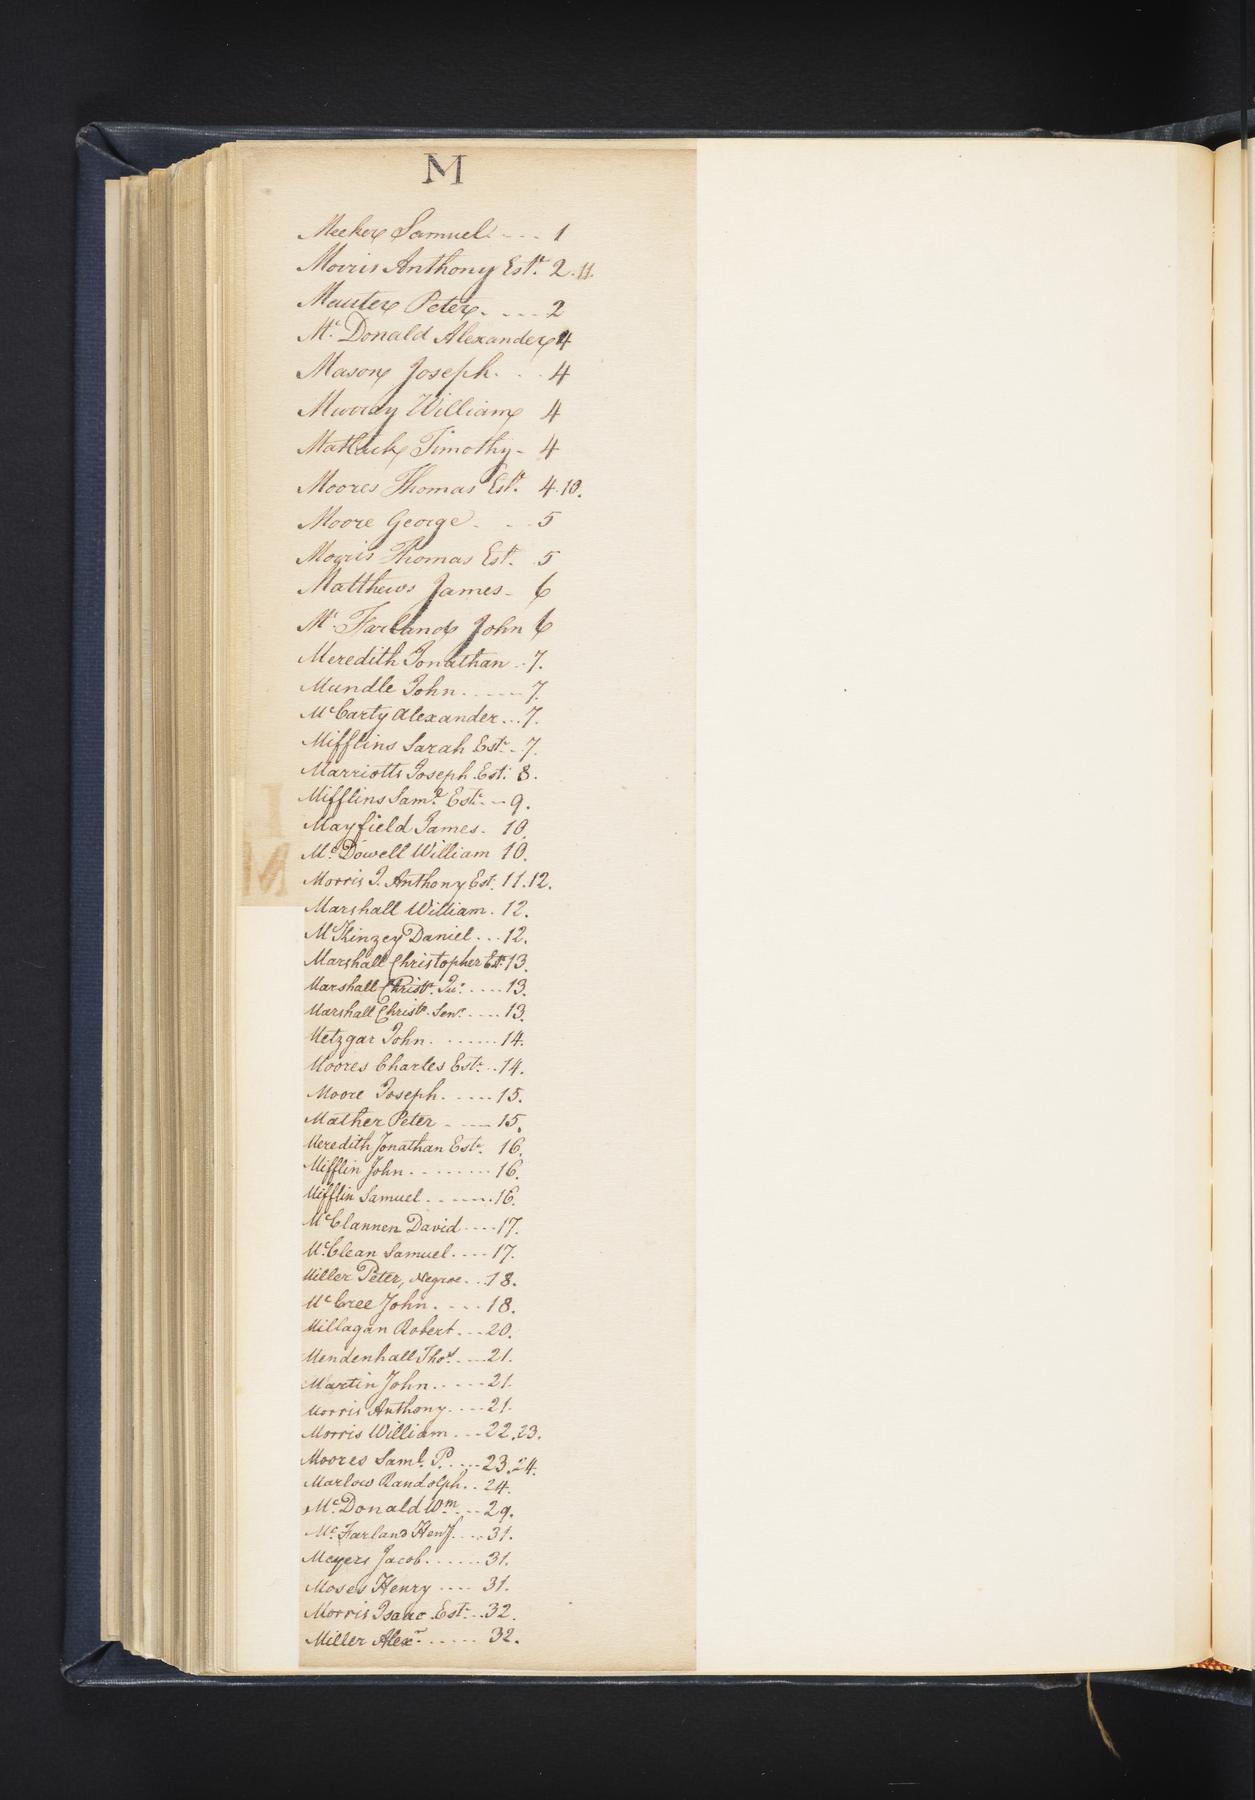 M
Meeker Samuel - - - 1
Morris Anthony Estr. 2.11.
Peter - - - - 2
Mc. Donald Alexander 4
Mason Joseph - - - 4
Murray William 4
Matlack Timothy - 4
Moores Thomas Estr. 4.10.
Moore George - - - 5
Morris Thomas Estr. 5
Matthews James - 6
Mc. Farland John 6
Meredith Jonathan - - 7.
Mundle John - - - - - 7.
McCarty Alexander - - - 7.
Mifflins Sarah Estr. - - 7.
Marriotts Joseph Est. 8.
Mifflins Saml. Estr. - - 9.
Mayfield James - 10.
Mc. Dowell William 10.
Morris J. Anthony Est. 11.12.
Marshall William . 12.
McKinzey Daniel - - - 12.
Marshall Christopher Estr. 13.
Marshall Christr. Jur. - - - - 13.
Marshall Christr. Senr. - - - - 13.
Metzgar John - - - - - - - 14.
Moores Charles Estr. - - 14.
Moore Joseph - - - - - 15.
Mather Peter - - - - - 15.
Meredith Jonathan Estr. 16.
Mifflin John - - - - - - - - 16.
Mifflin Samuel - - - - - - 16.
McClannen David - - - - 17.
McClean Samuel - - - - 17.
Miller Peter, Negroe - - - 18.
McCree John - - - - 18.
Millagan Robert - - - 20.
Mendenhall Thos. - - - 21.
Martin John - - - - - 21.
Morris Anthony - - - - 21.
Morris William - - - 22.23.
Moores Saml. P. - - - - 23.24.
Marlow Randolph - - 24.
Mc. Donald Wm. - - - 29.
Mc. Farland - - - - 31.
Meyers Jacob - - - - - - 31.
Moses Henry - - - - 31.
Morris Isaac Estr. - - 32.
Miller Alexr. - - - - - - 32.
M